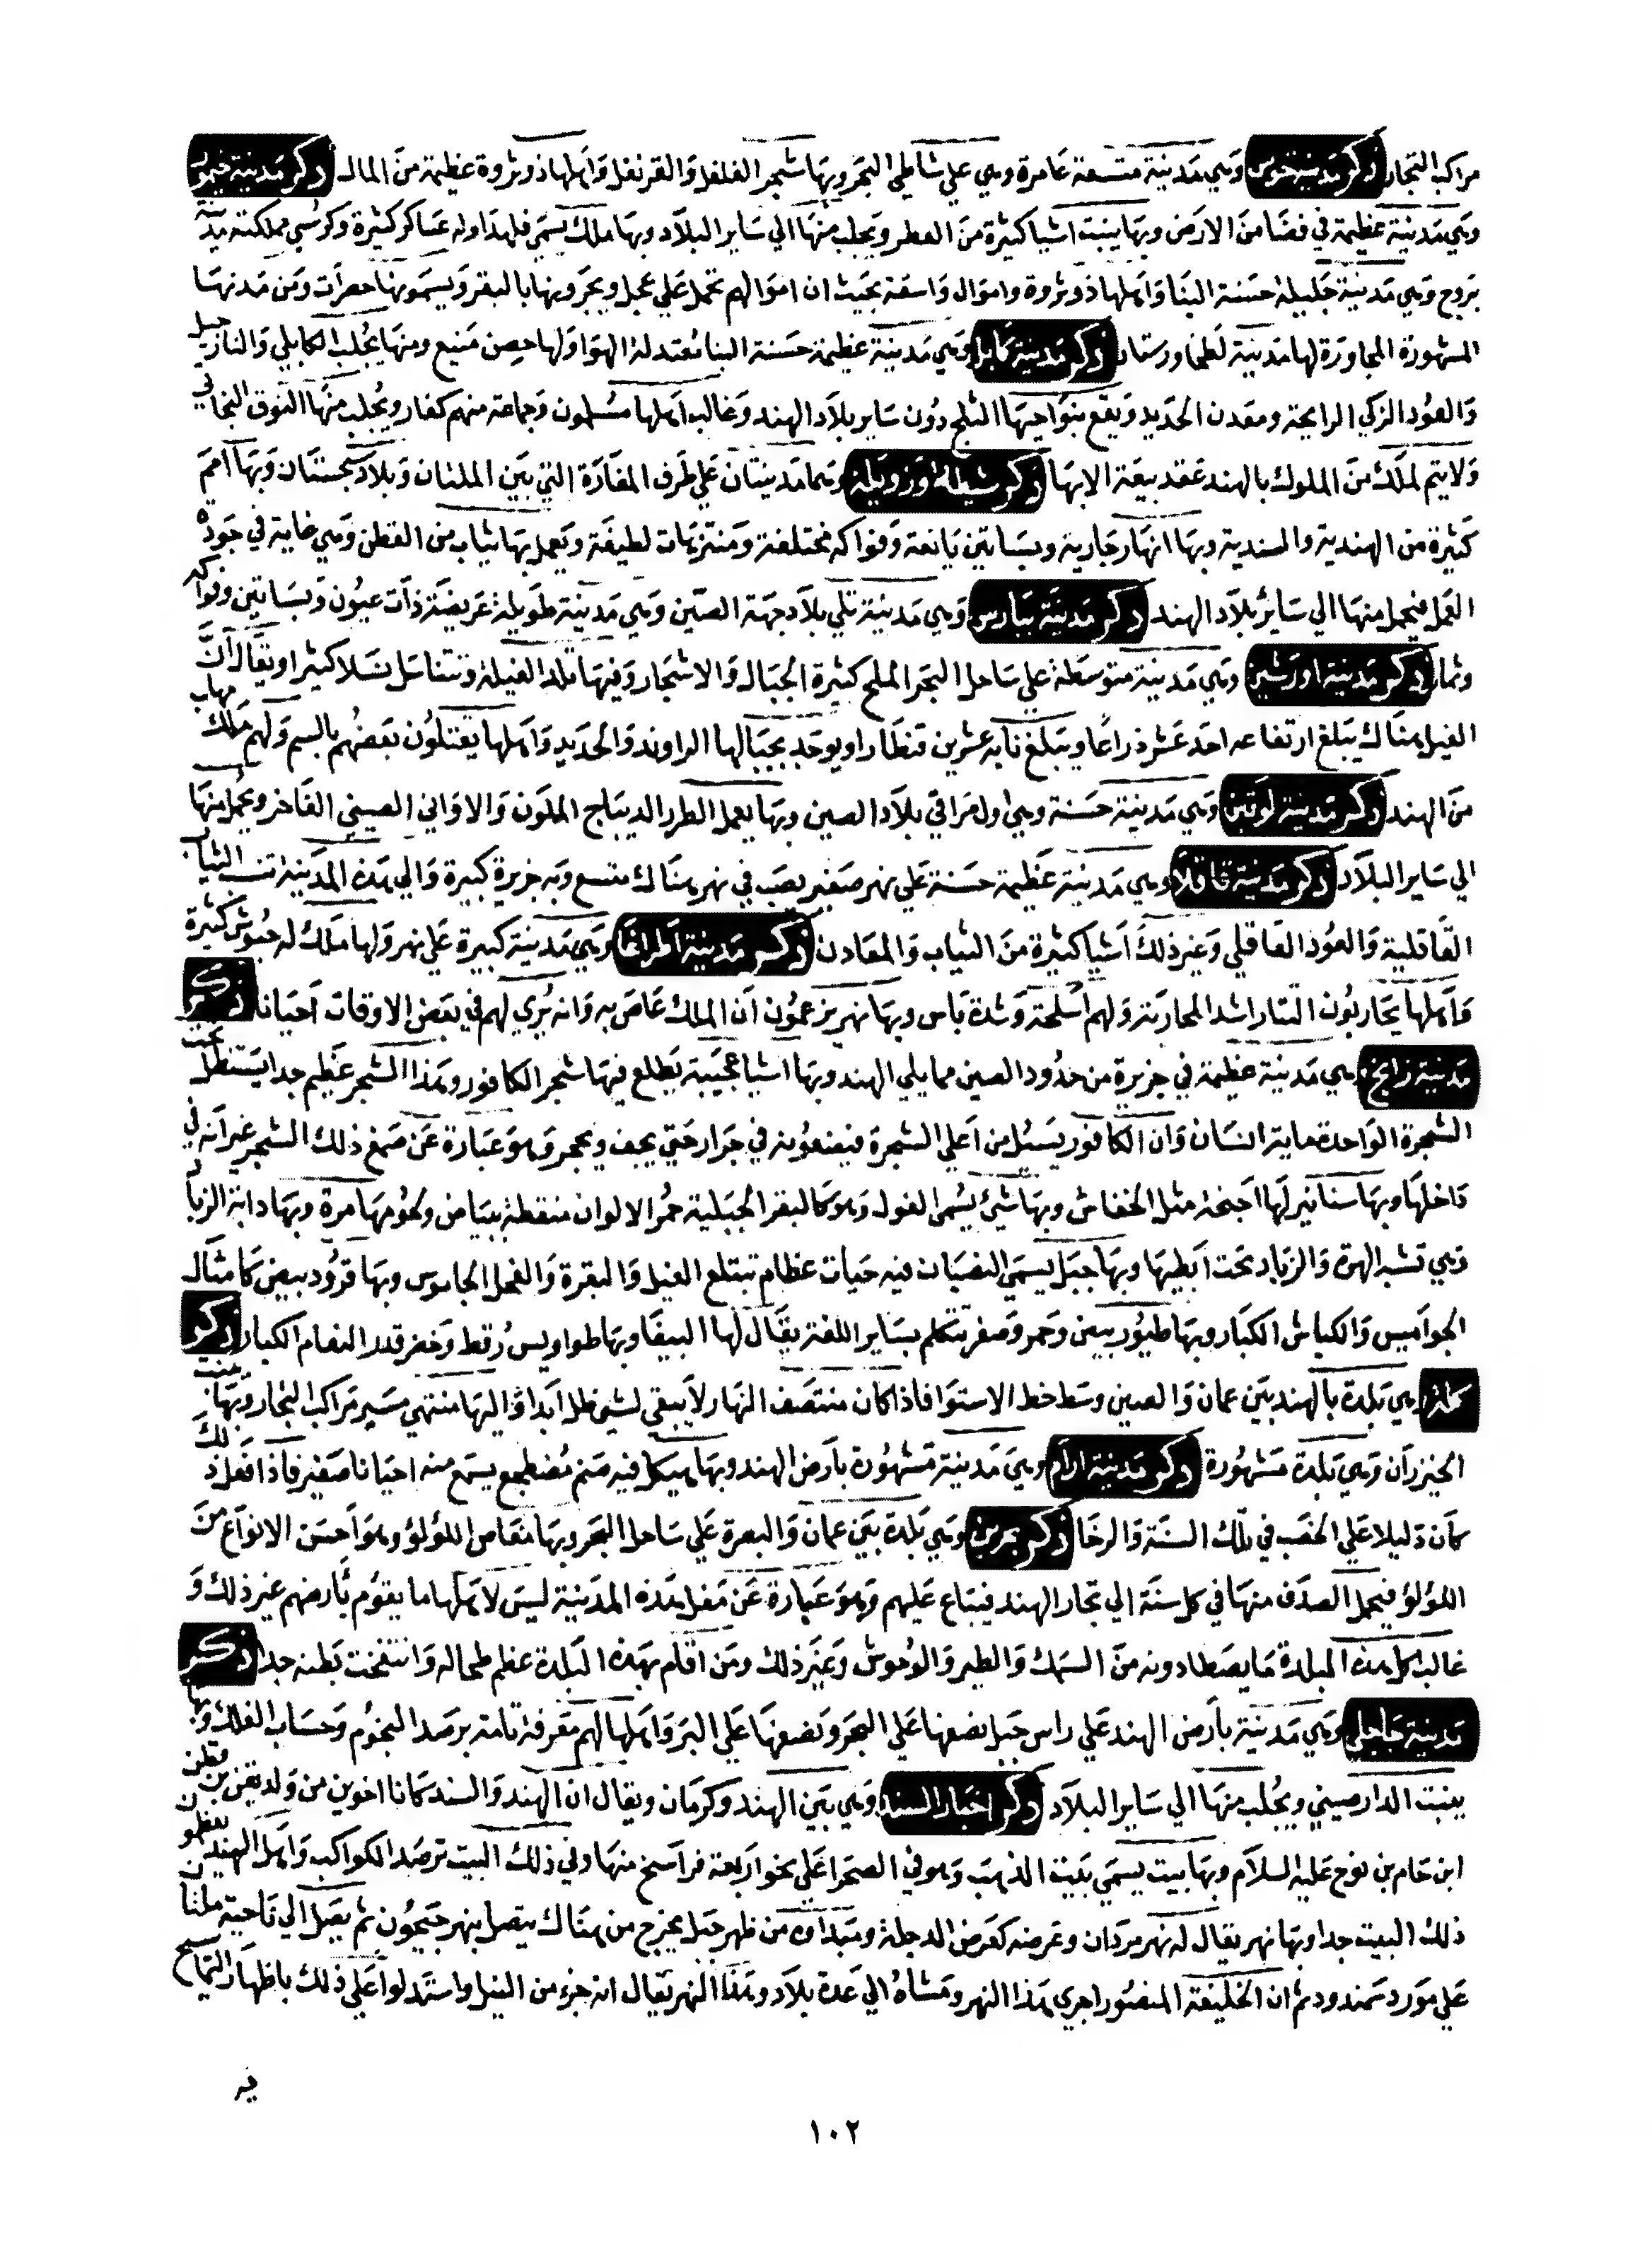 مراكب التجار ذكر مدينة جرس وهي مدينة متسعة عامرة وهي علي شاطي البحر وبها شجر الفلفل والقرنفل واهلها ذو ثروة عظيمة من المال ذكر مدينة خيمور
وهي مدينة عظيمة في فضا من الارض وبها ينبت اشيا كثيرة من العطر ويجلب منها الي ساير البلاد وبها ملك يسمي فلهدا وله عساكر كثيرة وكرسي مملكته مدينة
بروج وهي مدينة جليلة حسنة البنا واهلها ذو ثروة واموال واسعة بحيث ان اموالهم تحمل علي عجل ويجرونها بالبقر ويسمونها حصرات ومن مدنها
المشهورة المجاورة لها مدينة لطما ورستار ذكر مدينة كابل وهي مدينة عظيمة حسنة البنا معتدلة الهوا ولها حصن منيع ومنها يجلب الكابلي والنارجيل
والعود الزكي الرايحة ومعدن الحديد ويقع بنواحيها الثلج دون ساير بلاد الهند وغالب اهلها مسلمون وجماعة منهم كفار ويجلب منها النوق البخاتي
ولا يتم لملك من الملوك بالهند عقد بيعة الا بها ذكر وزويله وهما مدينتان علي طرف المفازة التي بين الملتان وبلاد سجستان وبها امم
كثيرة من الهندية والسندية وبها انهار جارية وبساتين يانعة وفواكه مختلفة ومنتزهات لطيفة ويعمل بها ثياب من القطن وهي غاية في جودة
العمل فيحمل منها الي ساير بلاد الهند ذكر مدينة بيارس وهي مدينة تلي بلاد جهة الصين وهي مدينة طويلة عريضة ذات عيون وبساتين وفواكه
وثمار ذكر مدينة اورشين وهي مدينة متوسطة علي ساحل البحر الملح كثيرة الجبال والاشجار وفيها تلد الفيلة وتتناسل نسلا كثيرا ويقال ان
الفيل هناك يبلغ ارتفاعه احد عشر ذراعا ويبلغ نابه عشرين قنطارا ويوجد بجبالها الراوند والحديد واهلها يقتلون بعضهم بالسم ولهم ملك مهاب
من الهند ذكر مدينة لوقين وهي مدينة حسنة وهي اول مراقي بلاد الصين وبها يعمل الطرر الديباج الملون والاواني الصيني الفاخر ويحمل منها
الي ساير البلاد ذكر مدينة قاقلا وهي مدينة عظيمة حسنة علي نهر صغير يصب في نهر هناك متسع وبه جزيرة كبيرة والي هذه المدينة تنسب الثياب
القاقلية والعود القاقلي وغير ذلك اشيا كثيرة من الثياب والمعادن ذكر مدينة اطراغا وهي مدينة كبيرة علي نهر ولها ملك له جيوش كثيرة
واهلها يحاربون التتار اشد المحاربة ولهم اسلحة وشدة باس وبها نهر يزعمون ان الملك غاص به وانه يري لهم في بعض الاوقات احيانا ذكر
مدينة زابج وهي مدينة عظيمة في جزيرة من حدود الصين مما يلي الهند وبها اشيا عجيبة يطلع فيها شجر الكافور وهذا الشجر عظيم جدا يستظل تحت
الشجرة الواحدة ماية انسان وان الكافور يسيل من اعلي الشجرة فيضعونه في جرار حتي يجف ويحجر وهو عبارة عن صمغ ذلك الشجر غير انه في
داخلها وبها سنانير لها اجنحة مثل الخفاش وبها شيئ يسمي الغول وهو كالبقر الجبلية حمر الالوان منقطة ببياض ولحومها مرة وبها دابة الزباد
وهي تشبه الهرة والزباد تحت ابطيها وبها جبل يسمي النصبان فيه حيات عظام تبتلع الفيل والبقرة والفحل الجاموس وبها قرود بيض كامثال
الجواميس والكباش الكبار وبها طيور بيض وحمر وصفر يتكلم بساير اللغة يقال لها الببغا وبها طواويس رقط وخضر قدر النعام الكبار ذكر
كله وهي بلدة بالهند بين عمان والصين وسط خط الاستوا فاذا كان منتصف النهار لا يبقي لشي ظل ابدا واليها منتهي مسير مراكب التجار وبها منبت
الخيزران وهي بلدة مشهورة ذكر مدينة ارام وهي مدينة مشهورة بارض الهند وبها هيكل فيه صنم مضطجع يسمع منه احيانا صفير فاذا فعل ذلك
كان دليلا علي الخصب في تلك السنة والرخا ذكر بحرين وهي بلدة بين عمان والبصرة علي ساحل البحر وبها مغاص اللؤلؤ وهو احسن الانواع من
اللؤلؤ فيحمل الصدف منها في كل سنة الي تجار الهند فيباع عليهم وهو عبارة عن مغل هذه المدينة ليس لاهلها ما يقوم بأرضهم غير ذلك و
غالب اكل هذه البلدة ما يصطادونه من السمك والطير والوحوش وغير ذلك ومن اقام بهذه البلدة عظم طحاله وانتفخت بطنه جدا ذكر
مدينة جاجلي وهي مدينة بارض الهند علي راس جبل نصفها علي البحر ونصفها علي البر واهلها لهم معرفة تامة برصد النجوم وحساب الفلك وبها
ينبت الدارصيني ويجلب منها الي ساير البلاد ذكر اخبار السند وهي بين الهند وكرمان ويقال ان الهند والسند كانا اخوين من ولد يقن بن قطن
ابن حام بن نوح عليه السلام وبها بيت يسمي بيت الذهب وهو في الصحرا علي نحو اربعة فراسخ منها وفي ذلك البيت ترصد الكواكب واهل الهند يعظمون
ذلك البيت جدا وبها نهر يقال له نهر مردان وعرضه كعرض الدجلة ومبداوه من ظهر جبل يخرج من هناك يتصل بنهر جيحون ثم يصل الي ناحية ملتان
علي مورد سمندود ثم ان الخليفة المنصور اجري هذا النهر ومشاه الي عدة بلاد وهذا النهر يقال انه جزء من النيل واستدلوا علي ذلك باظهار التماسيح
فيه
١٠٢